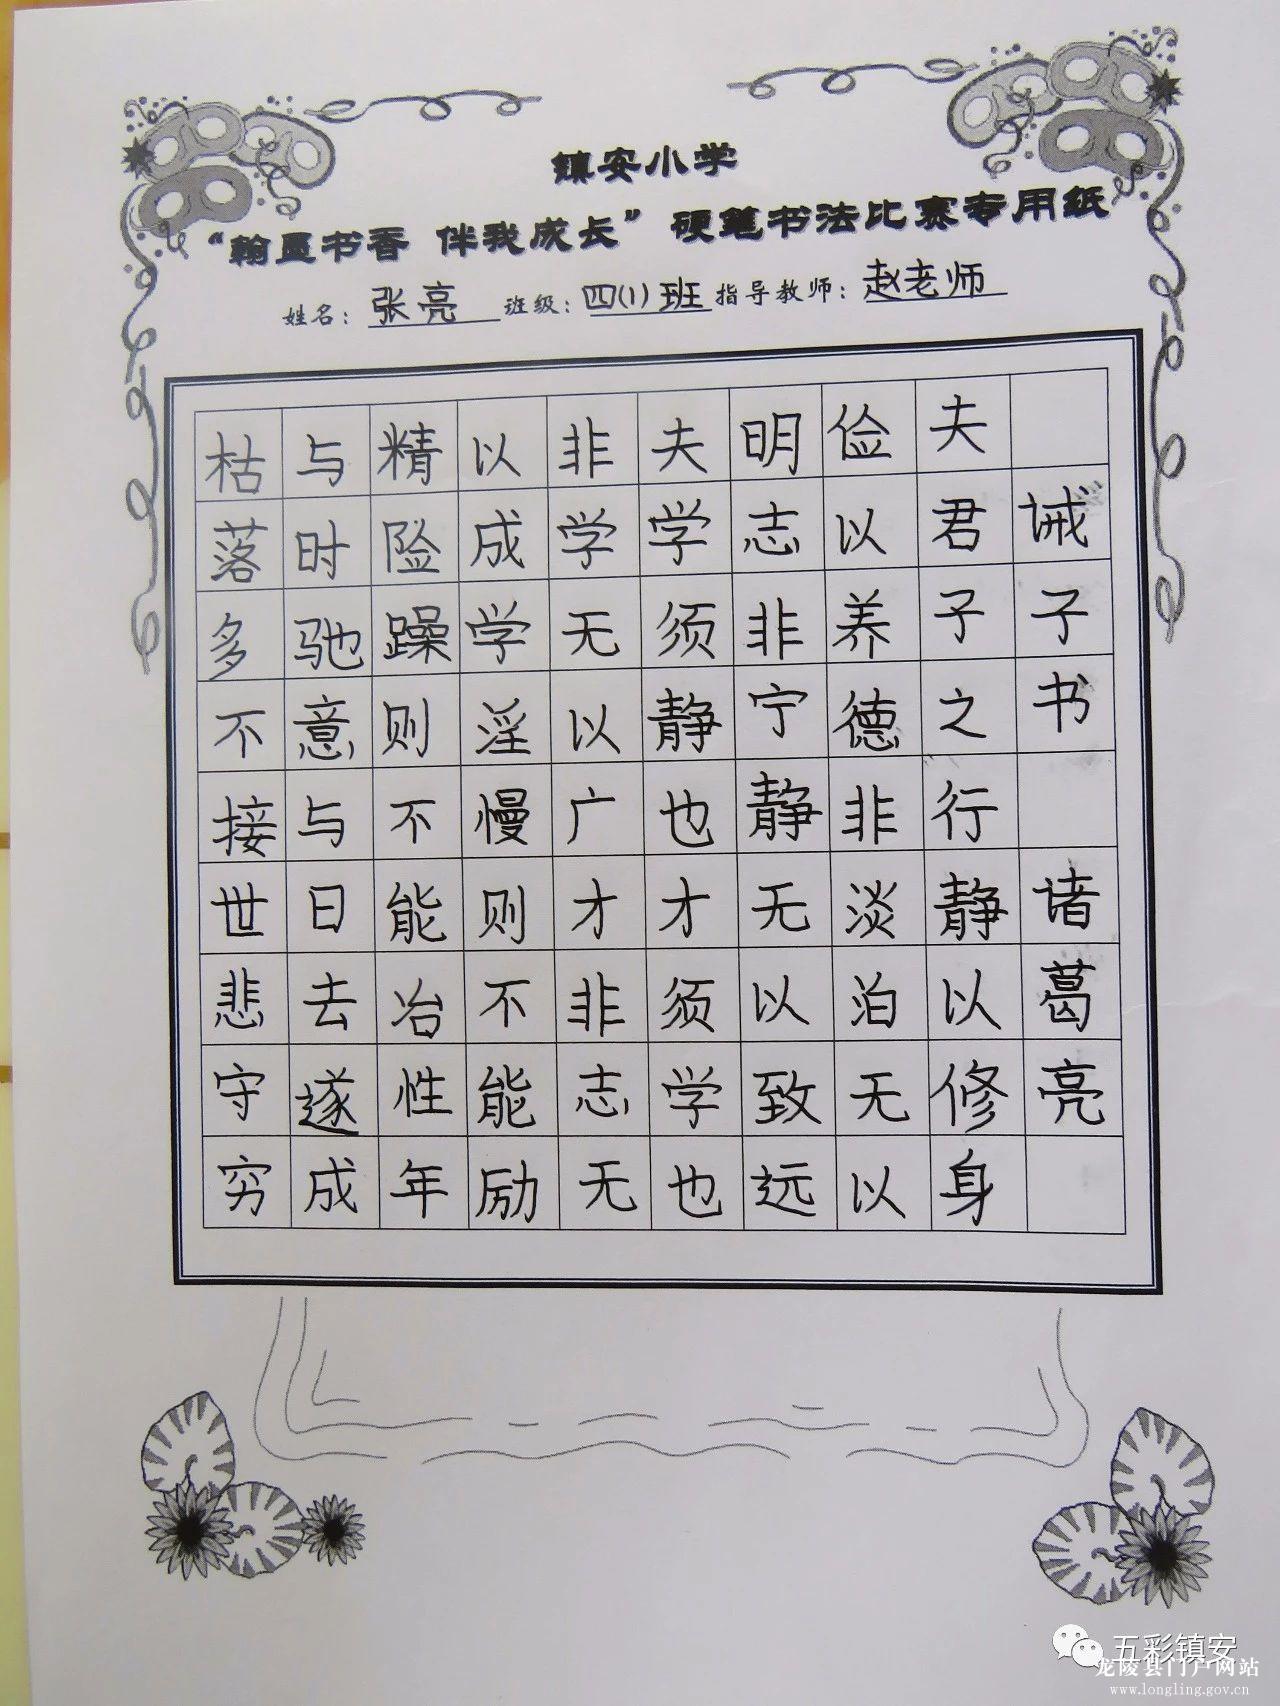 镇安小学
“翰墨书香 伴我成长”硬笔书法比赛专用纸
姓名：张亮 班级：四(1)班 指导教师：赵老师
诫子书 诸葛亮
夫君子之行静以修身
俭以养德非淡泊无以
明志非宁静无以致远
夫学须静也才须学也
非学无以广才非志无
以成学淫慢则不能励
精险躁则不能冶性年
与时驰意与日去遂成
枯落多不接世悲守穷
五彩镇安
龙陵县门户网站
www.longling.gov.cn